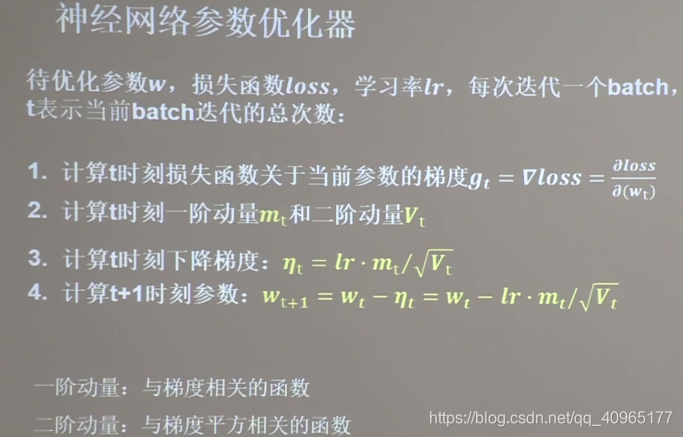 神经网络参数优化器
待优化参数w，损失函数loss，学习率lr，每次迭代一个batch，
t表示当前batch迭代的总次数：
1. 计算t时刻损失函数关于当前参数的梯度g_t = ∇loss = ∂loss/∂(w_t)
2. 计算t时刻一阶动量m_t和二阶动量V_t
3. 计算t时刻下降梯度：η_t = lr · m_t/√V_t
4. 计算t+1时刻参数：w_{t+1} = w_t − η_t = w_t − lr · m_t/√V_t
一阶动量：与梯度相关的函数
二阶动量：与梯度平方相关的函数
https://blog.csdn.net/qq_40965177